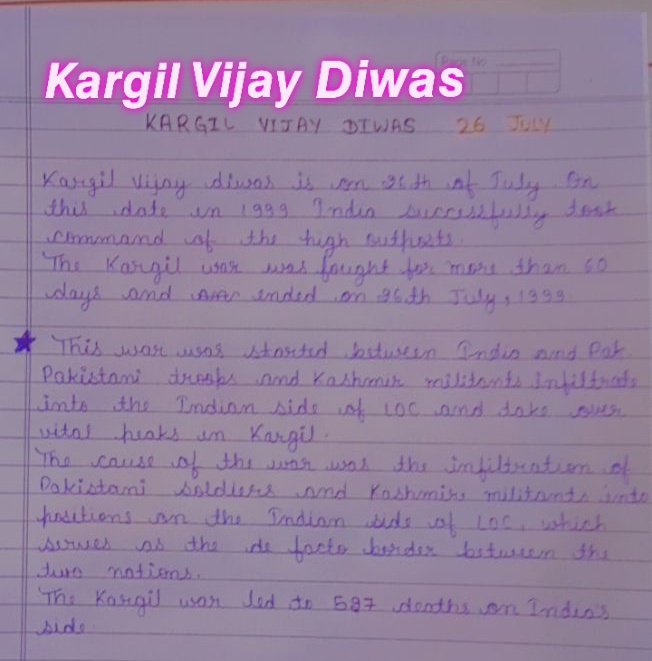 Kargil Vijay Diwas
Page No.
KARGIL VIJAY DIWAS 26 JULY
Kargil Vijay diwas is on 26th of July. On
this date in 1999 India successfully took
command of the high outposts.
The Kargil war was fought for more than 60
days and ended on 26th July, 1999
This war was started between India and Pak
Pakistani troops and Kashmir militants infiltrate
into the Indian side of LOC and take over
vital peaks in Kargil.
The cause of the war was the infiltration of
Pakistani soldiers and Kashmiri militants into
positions on the Indian side of LOC, which
serves as the de facto border between the
two nations.
The Kargil war led to 527 deaths on India's
side.